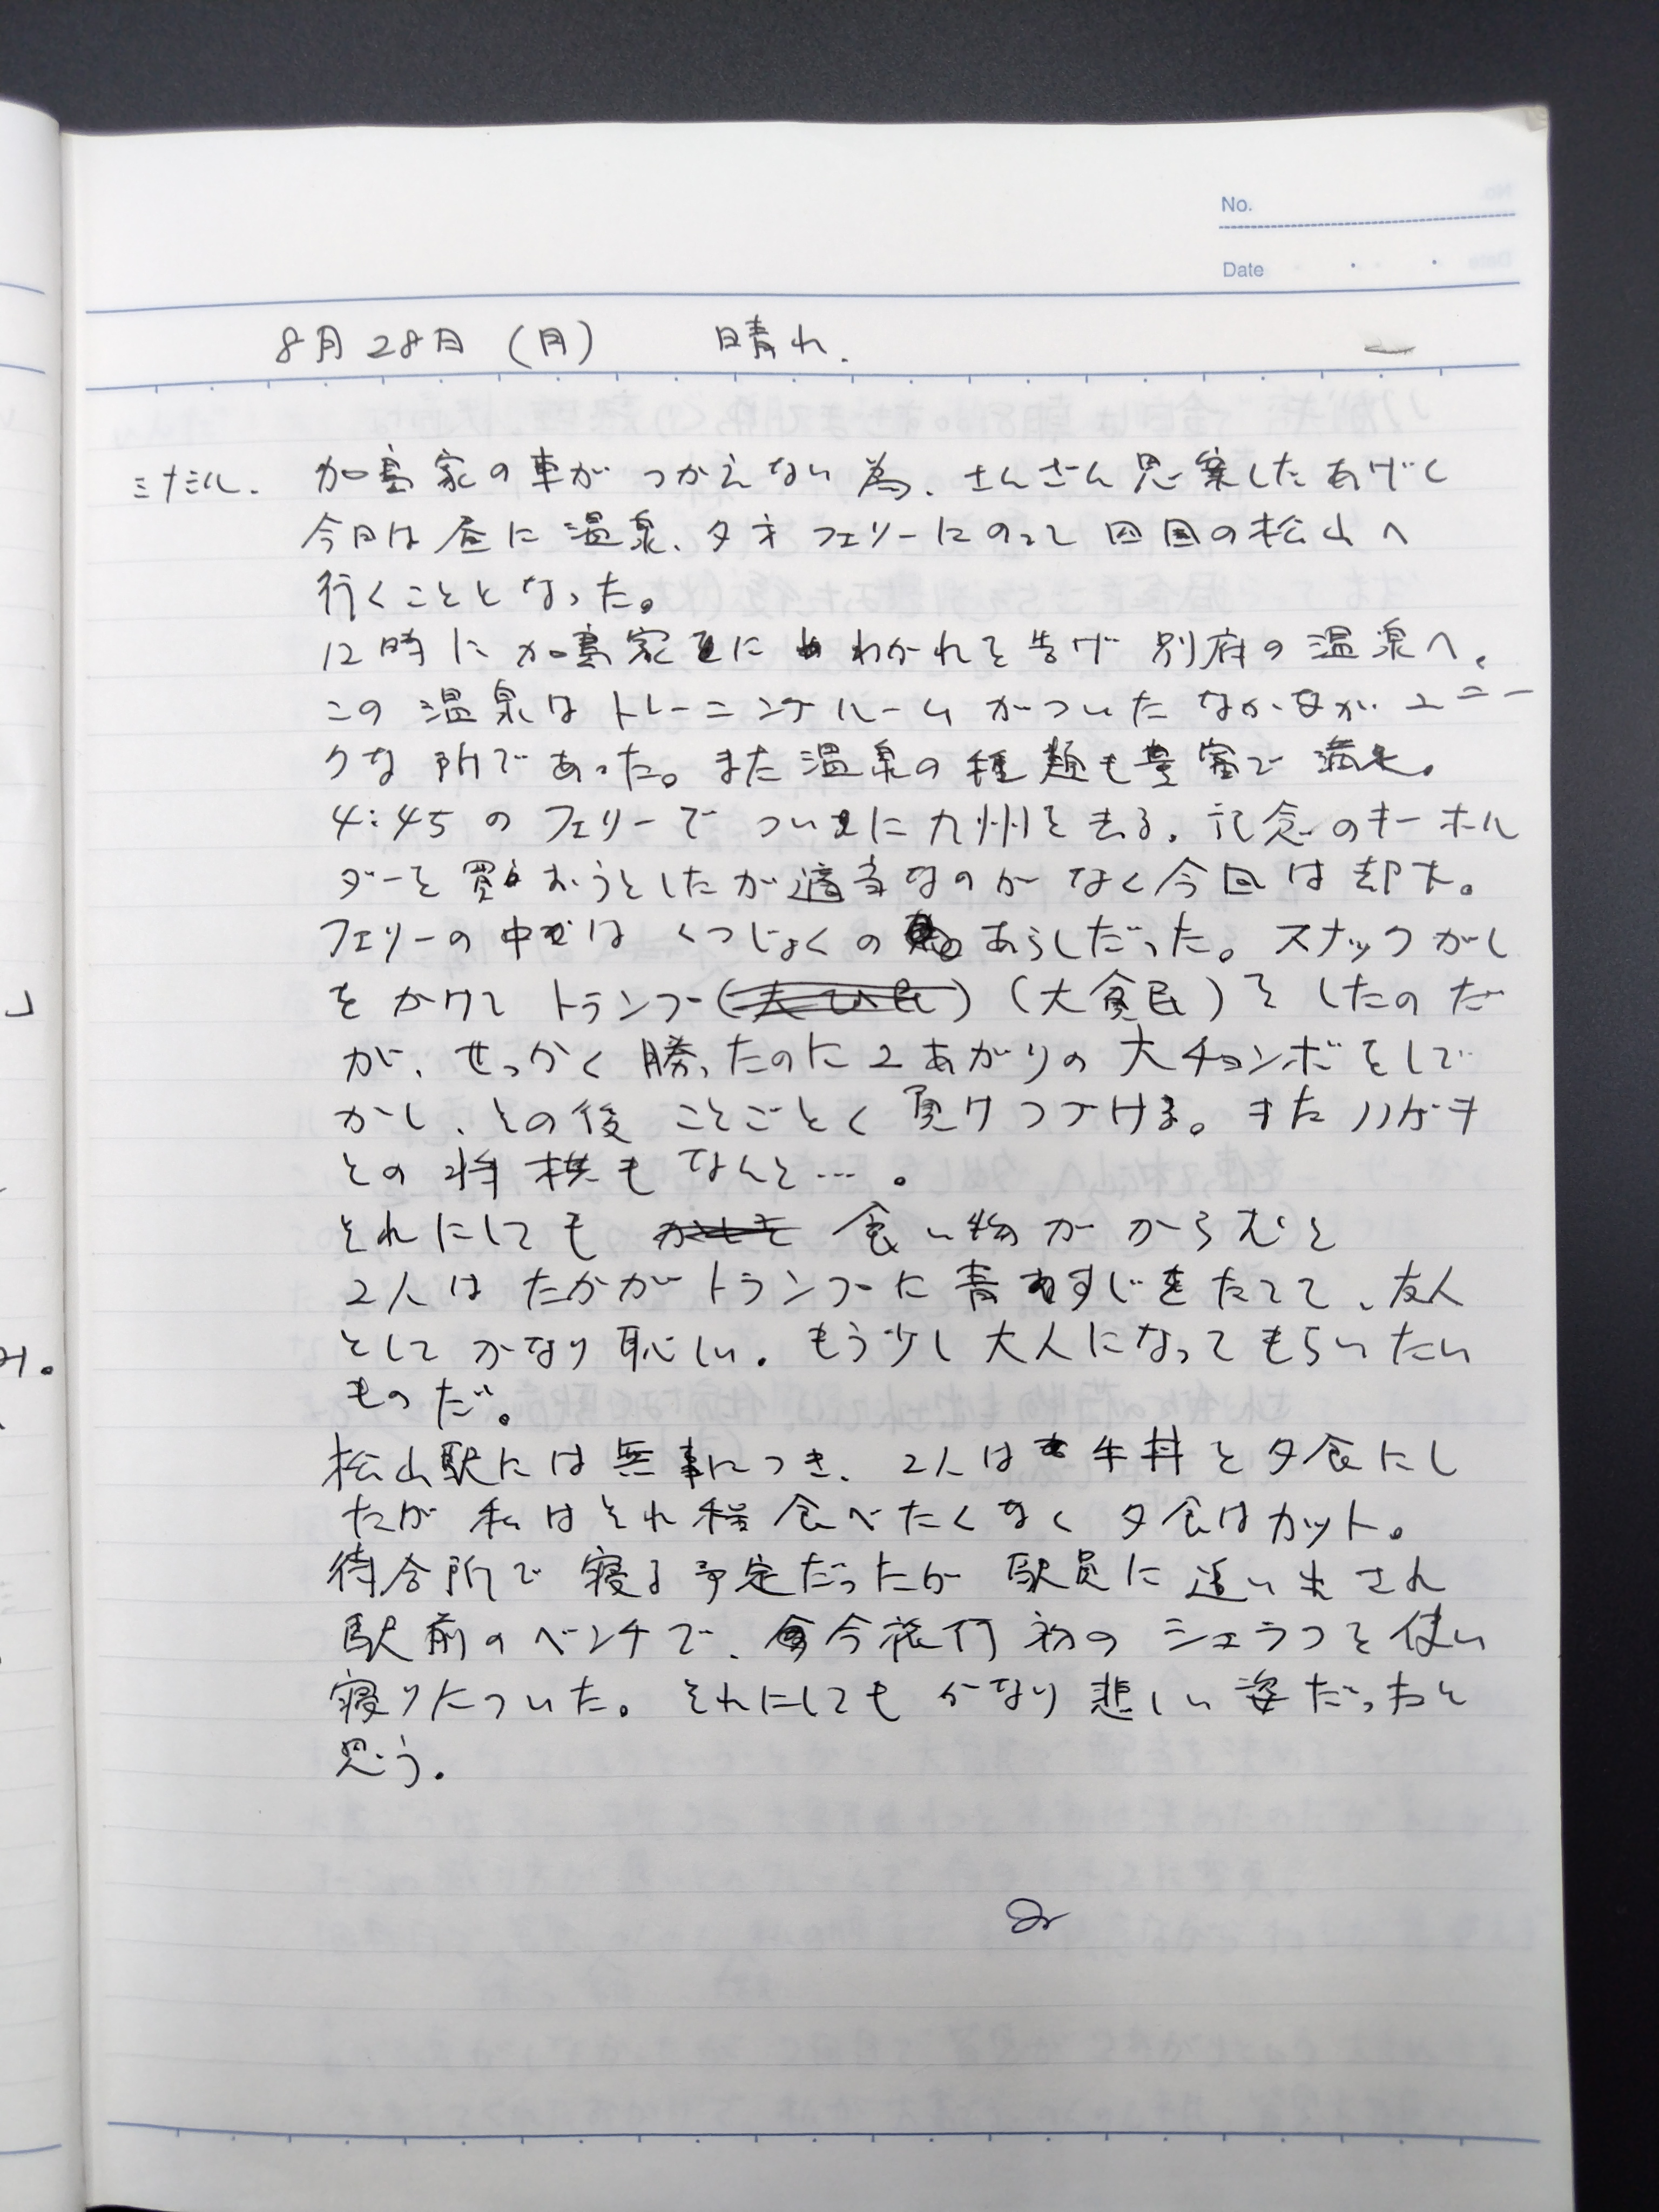 No.
Date
8月28日(月) 晴れ.
加島家の車がつかえない為、さんざん思案したあげく
今日は昼に温泉、夕方フェリーにのって四国の松山へ
行くこととなった。
12時に加島家にわかれを告げ別府の温泉へ。
この温泉はトレーニングルームがついたなかなかユニー
クな所であった。また温泉の種類も豊富で満足。
4:45のフェリーでついに九州を去る。記念のキーホル
ダーを買おうとしたが適当なのがなく今回は却下。
フェリーの中ではくつじょくのあらしだった。スナックがし
をかけてトランプ(大貧民)をしたのだ
が、せっかく勝ったのに2あがりの大チョンボをしで
かし、その後ことごとく負けつづける。またハゲキ
との将棋もなんと…。
それにしても 食い物がからむと
2人はたかがトランプに青すじをたてて、友人
としてかなり恥しい。もう少し大人になってもらいたい
ものだ。
松山駅には無事につき、2人は牛丼を夕食にし
たが私はそれ程食べたくなく夕食はカット。
待合所で寝る予定だったが駅員に追い出され
駅前のベンチで、今旅行初のシュラフを使い
寝りについた。それにしてもかなり悲しい姿だったと
思う.